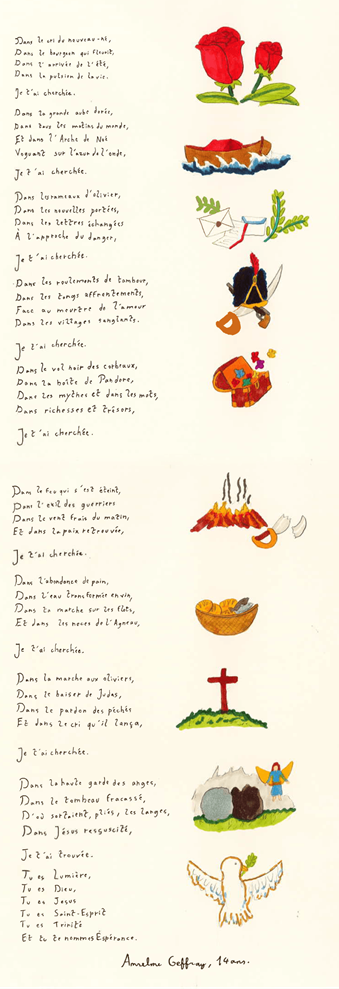 Dans le cri du nouveau-né,
Dans le bourgeon qui fleurit,
Dans l'arrivée de l'été,
Dans la pulsion de la vie.
Je t'ai cherchée.
Dans la grande aube dorée,
Dans tous les matins du monde,
Et dans l'Arche de Noé
Voguant sur l'azur de l'onde,
Je t'ai cherchée.
Dans les rameaux d'olivier,
Dans les nouvelles portées,
Dans les lettres échangées
À l'approche du danger,
Je t'ai cherchée.
Dans les roulements de tambour,
Dans les longs affrontements,
Face au meurtre de l'amour
Dans les villages sanglants.
Je t'ai cherchée.
Dans le vol noir des corbeaux,
Dans la boîte de Pandore,
Dans les mythes et dans les mots,
Dans richesses et trésors,
Je t'ai cherchée.
Dans le feu qui s'est éteint,
Dans l'exil des guerriers
Dans le vent frais du matin,
Et dans la paix retrouvée,
Je t'ai cherchée.
Dans l'abondance de pain,
Dans l'eau transformée en vin,
Dans la marche sur les flots,
Et dans les noces de l'Agneau,
Je t'ai cherchée.
Dans la marche aux oliviers,
Dans le baiser de Judas,
Dans le pardon des péchés
Et dans le cri qu'il lança,
Je t'ai cherchée.
Dans la haute garde des anges,
Dans le tombeau fracassé,
D'où sortaient, pliés, les langes,
Dans Jésus ressuscité,
Je t'ai trouvée.
Tu es Lumière,
Tu es Dieu,
Tu es Jésus
Tu es Saint-Esprit
Tu es Trinité
Et tu te nommes Espérance.
Anselme Geffray, 14 ans.